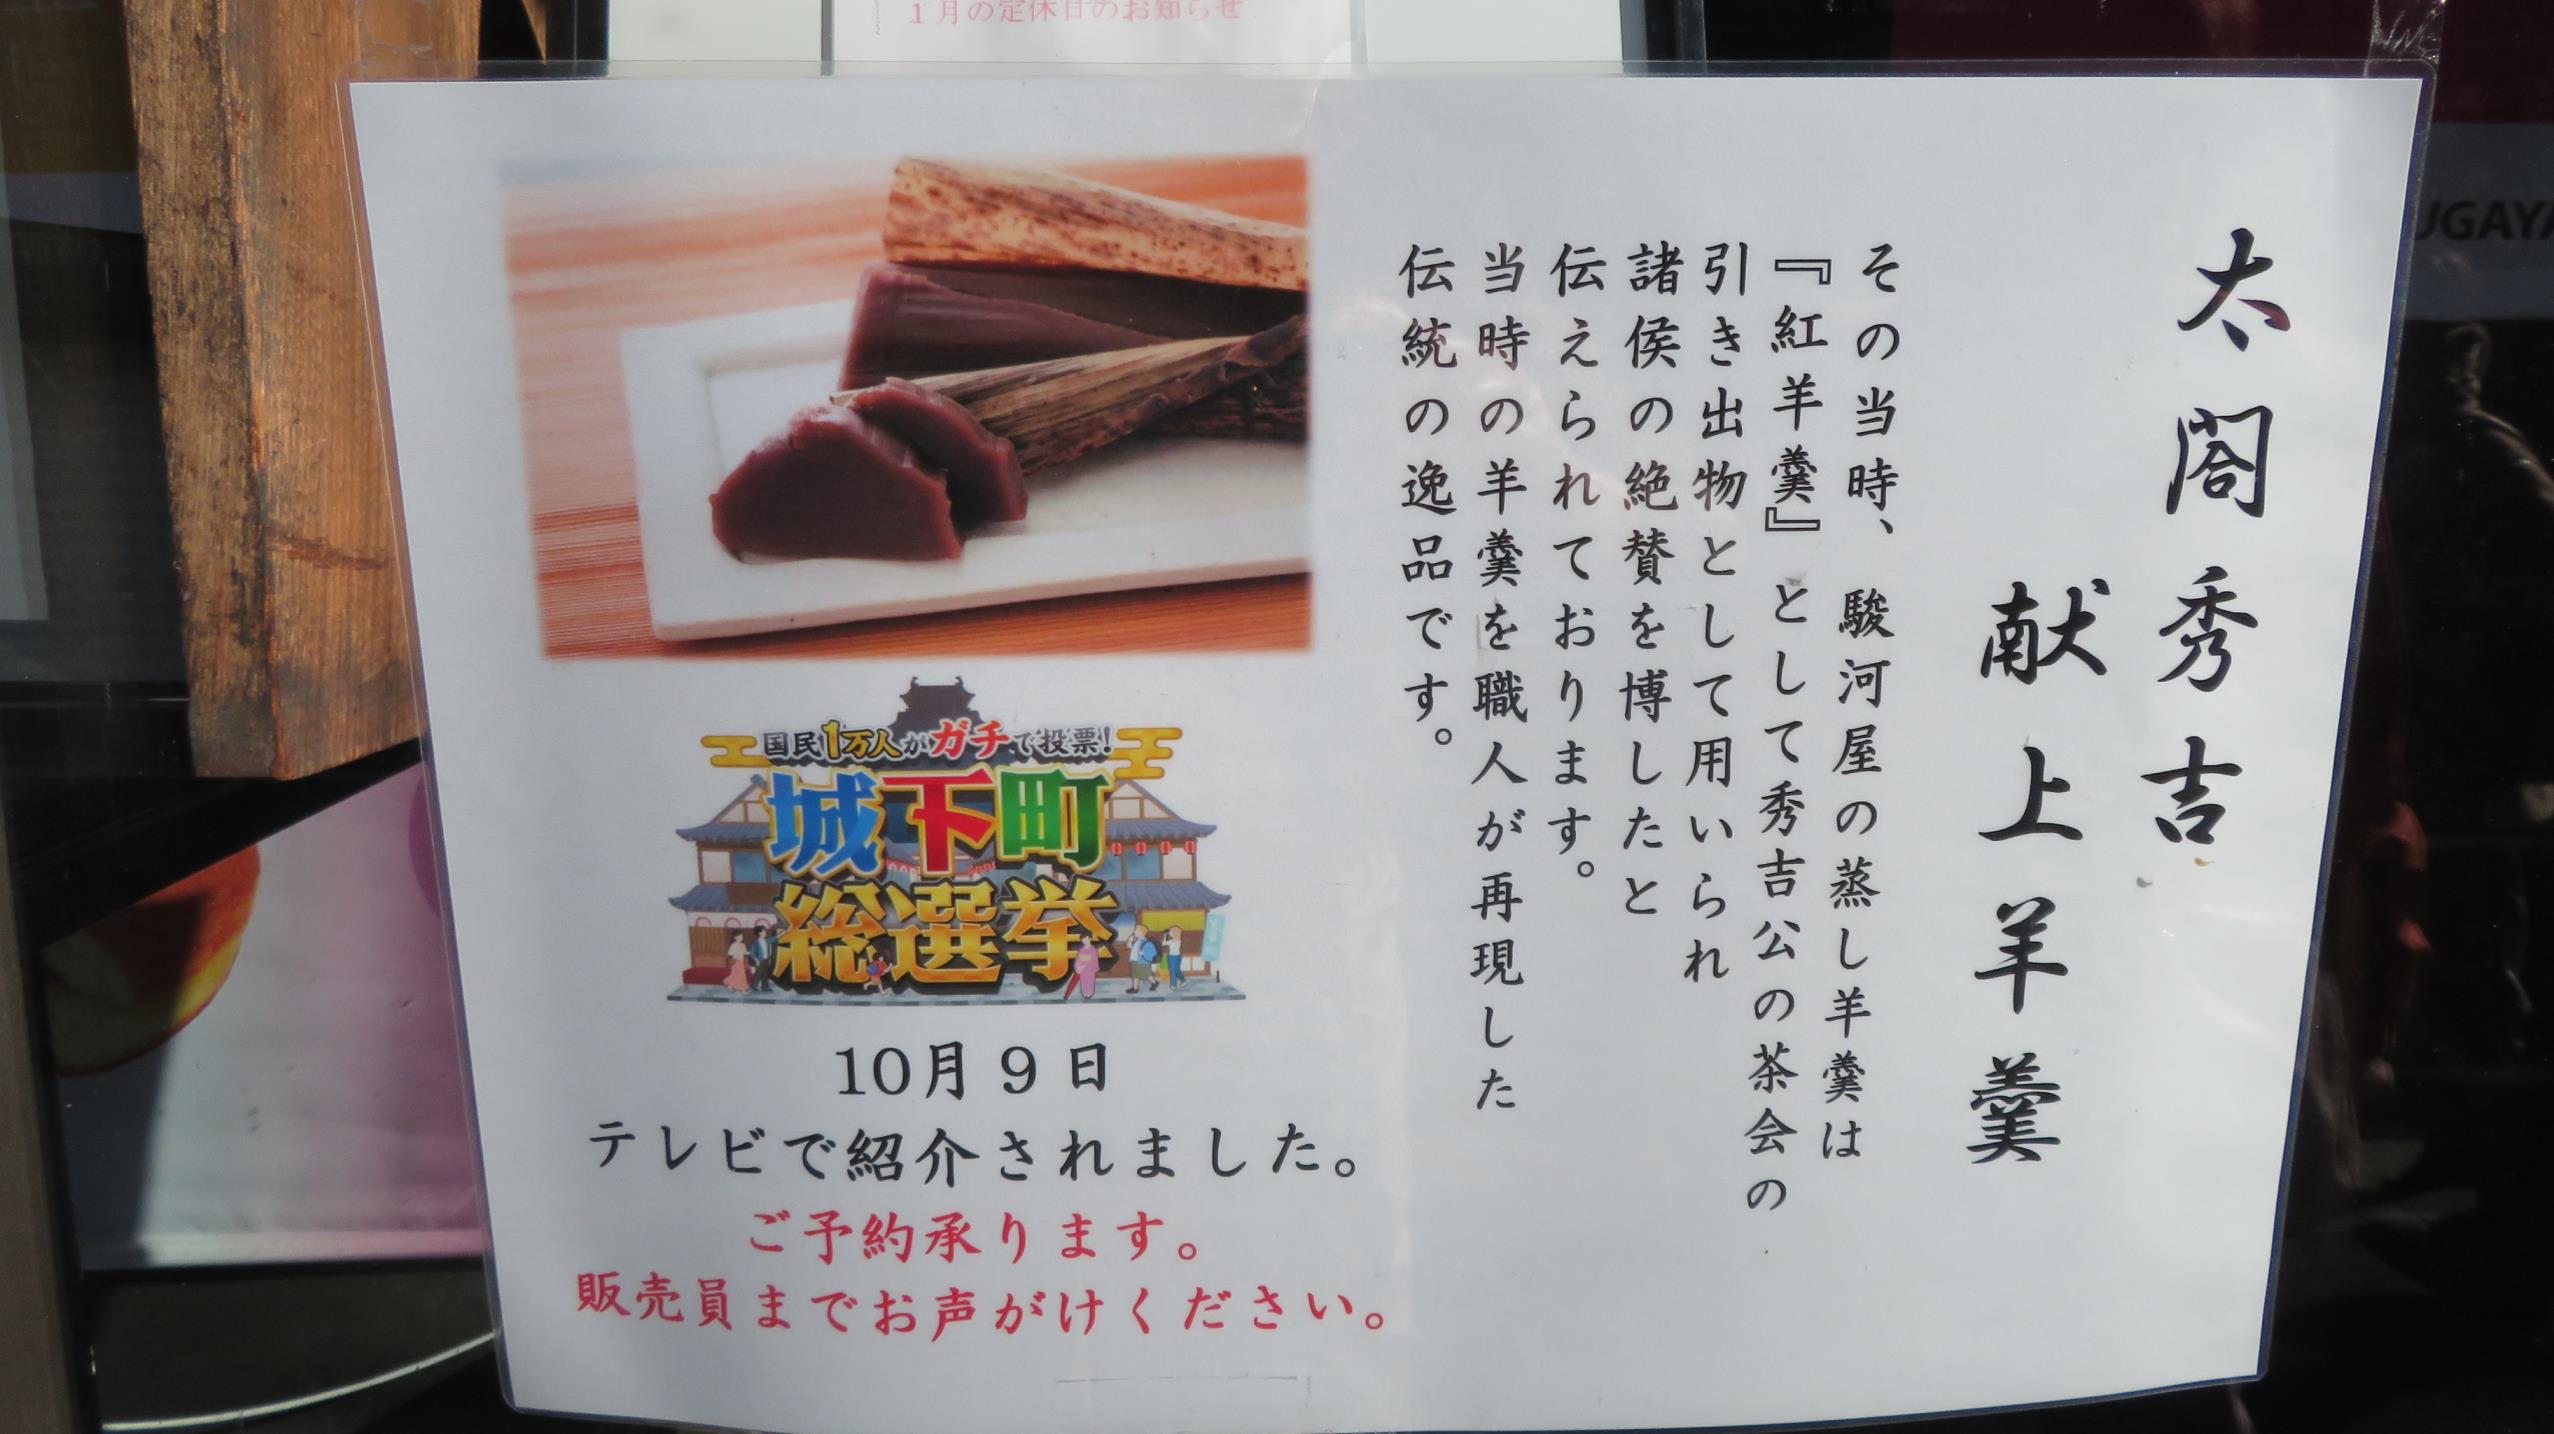 1月の定休日のお知らせ
太閤秀吉
献上羊羹
その当時、駿河屋の蒸し羊羹は
『紅羊羹』として秀吉公の茶会の
引き出物として用いられ
諸侯の絶賛を博したと
伝えられております。
当時の羊羹を職人が再現した
伝統の逸品です。
国民1万人がガチで投票!
城下町
総選挙
10月9日
テレビで紹介されました。
ご予約承ります。
販売員までお声がけください。
UGAYA